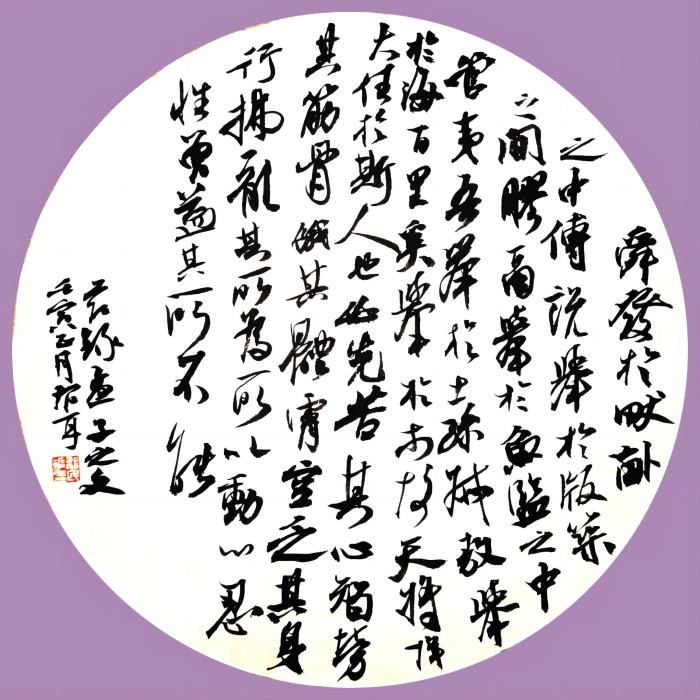 舜發於畎畝
之中傅說舉於版築
之間膠鬲舉於魚鹽之中
管夷吾舉於士孫叔敖舉
於海百里奚舉於市故天將降
大任於斯人也必先苦其心智勞
其筋骨餓其體膚空乏其身
行拂亂其所為所以動心忍
性曾益其所不能
节錄孟子之文
壬寅